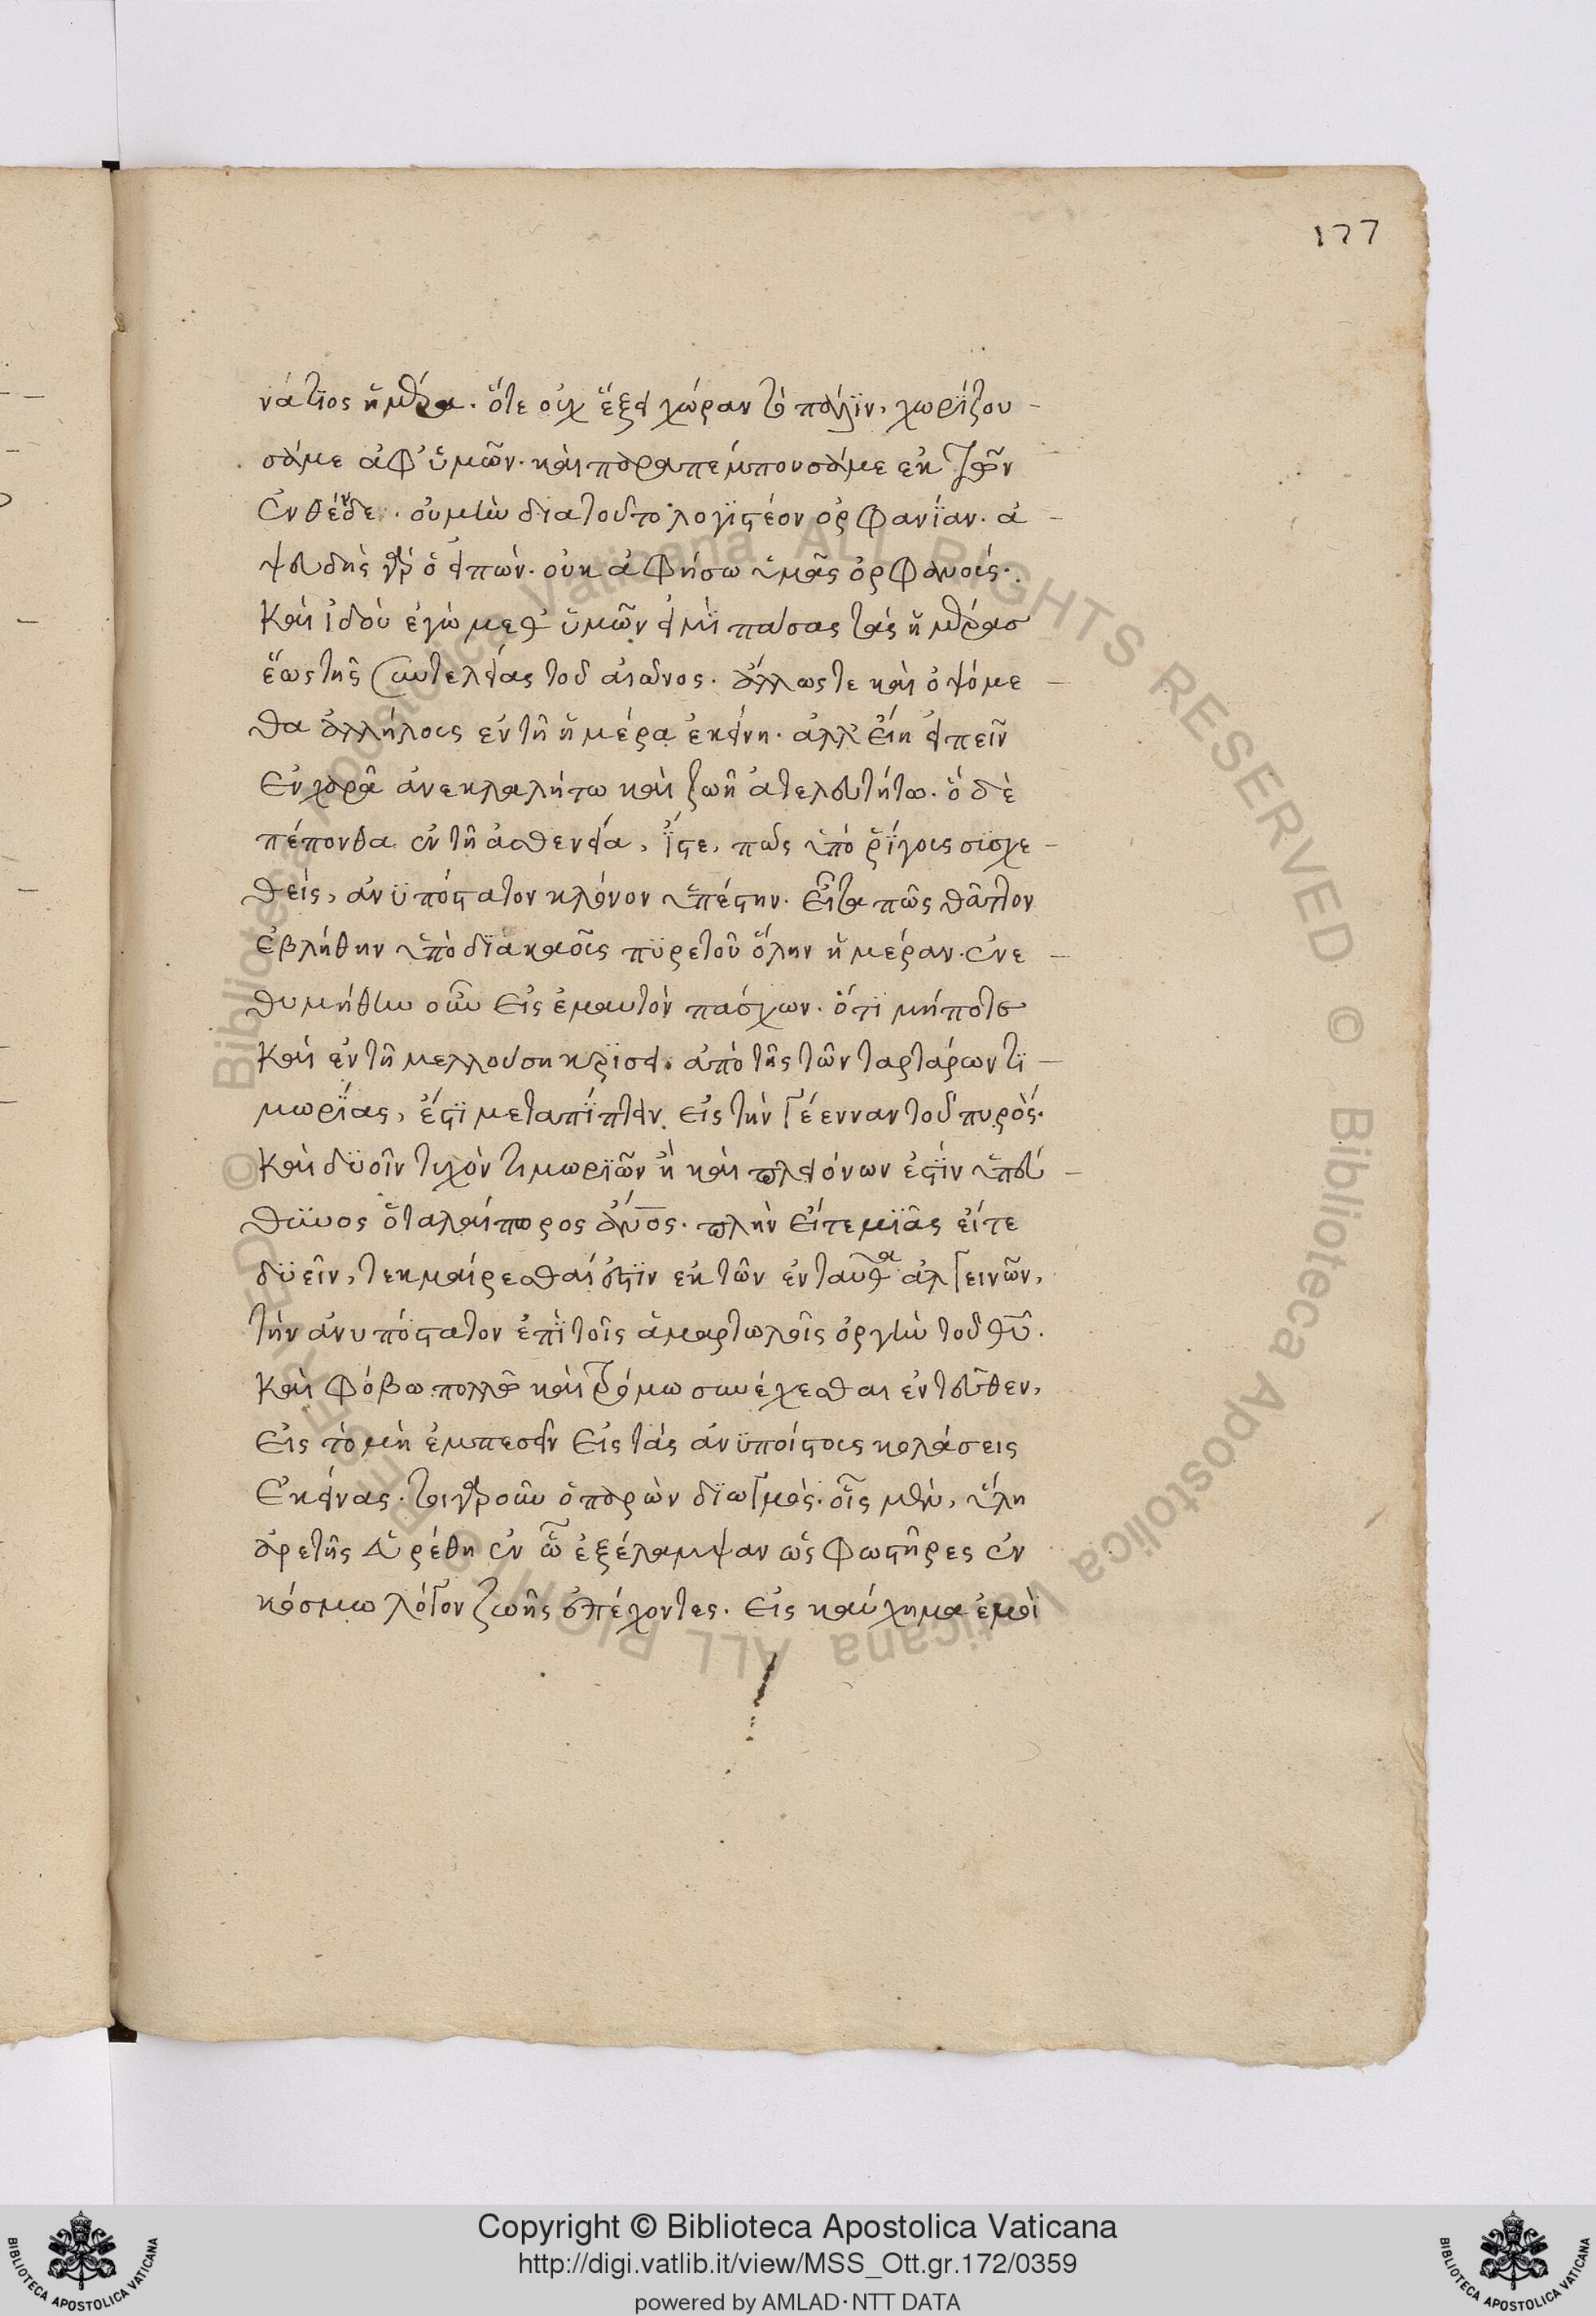 177
νάτιος ἡμέρα. ὅτε οὐχ ἕξει χώραν τὸ πάλϊν, χωρΐζου-
σά με ἀφ' ὑμῶν. καὶ παραπέμπουσά με ἐκ τῶν
ἐνθένδε. οὐ μὴν διατοῦτο λογϊστέον ὀρφανΐαν. ἀ-
ψευδὴς γὰρ ὁ εἰπών. οὐκ ἀφήσω ὑμᾶς ὀρφανούς.
Καὶ ἰδοὺ ἐγὼ μεθ' ὑμῶν εἰμϊ πάσας τὰς ἡμέρας
ἕως τῆς συντελείας τοῦ αἰῶνος. ἄλλως τε καὶ ὀψόμε-
θα ἀλλήλους ἐν τῆ ἡμέρα ἐκείνη. ἀλλ' εἴη εἰπεῖν
ἐν χαρᾶ ἀνεκλαλήτω καὶ ζωῆ ἀτελευτήτω. ὃ δὲ
πέπονθα ἐν τῆ ἀσθενεία, ἴ̈στε, πῶς ὑπὸ ῥΐγους σϊσχε-
θεὶς, ἀνϋπόστατον κλόνον ὑπέστην. εἶτα πῶς θᾶττον
ἐβλήθην ὑπὸ δϊακαοῦς πϋρετοῦ ὅλην ἡμέραν. ἐνε-
θυμήθην οὖν εἰς ἐμαυτὸν πάσχων. ὅτϊ μήποτε
Καὶ ἐν τῆ μελλούση κρΐσει. ἀπὸ τῆς τῶν ταρτάρων τϊ-
μωρΐας, ἔστϊ μεταπΐπτειν εἰς τὴν γέενναν τοῦ πυρός.
Καὶ δϋοῖν τυχὸν τιμωρϊῶν ἢ καὶ πλειόνων ἐστϊν ὑπεύ-
θϋνος ὁ ταλαίπωρος ἄν̅ο̅ς. πλὴν εἴτε μϊᾶς εἴτε
δϋεῖν, τεκμαίρεσθαί ἐστϊν ἐκ τῶν ἐνταῦθα ἀλγεινῶν,
τὴν ἀνυπόστατον ἐπὶ τοῖς ἁμαρτωλοῖς ὀργὴν τοῦ θ̅υ̅.
Καὶ φόβω πολλῶ καὶ τρόμω συνέχεσθαι ἐντεῦθεν,
εἰς τὸ μὴ ἐμπεσεῖν εἰς τὰς ἀνϋποίστους κολάσεις
ἐκείνας. τοιγαροῦν ὁ παρὼν δϊωγμὸς. οἷς μὲν, ὕλη
ἀρετῆς εὑρέθη ἐν ὧ ἐξέλαμψαν ὡς φωστῆρες ἐν
κόσμω λόγον ζωῆς ἐπέχοντες. εἰς καύχημα ἐμοὶ
Copyright © Biblioteca Apostolica Vaticana
http://digi.vatlib.it/view/MSS_Ott.gr.172/0359
powered by AMLAD·NTT DATA